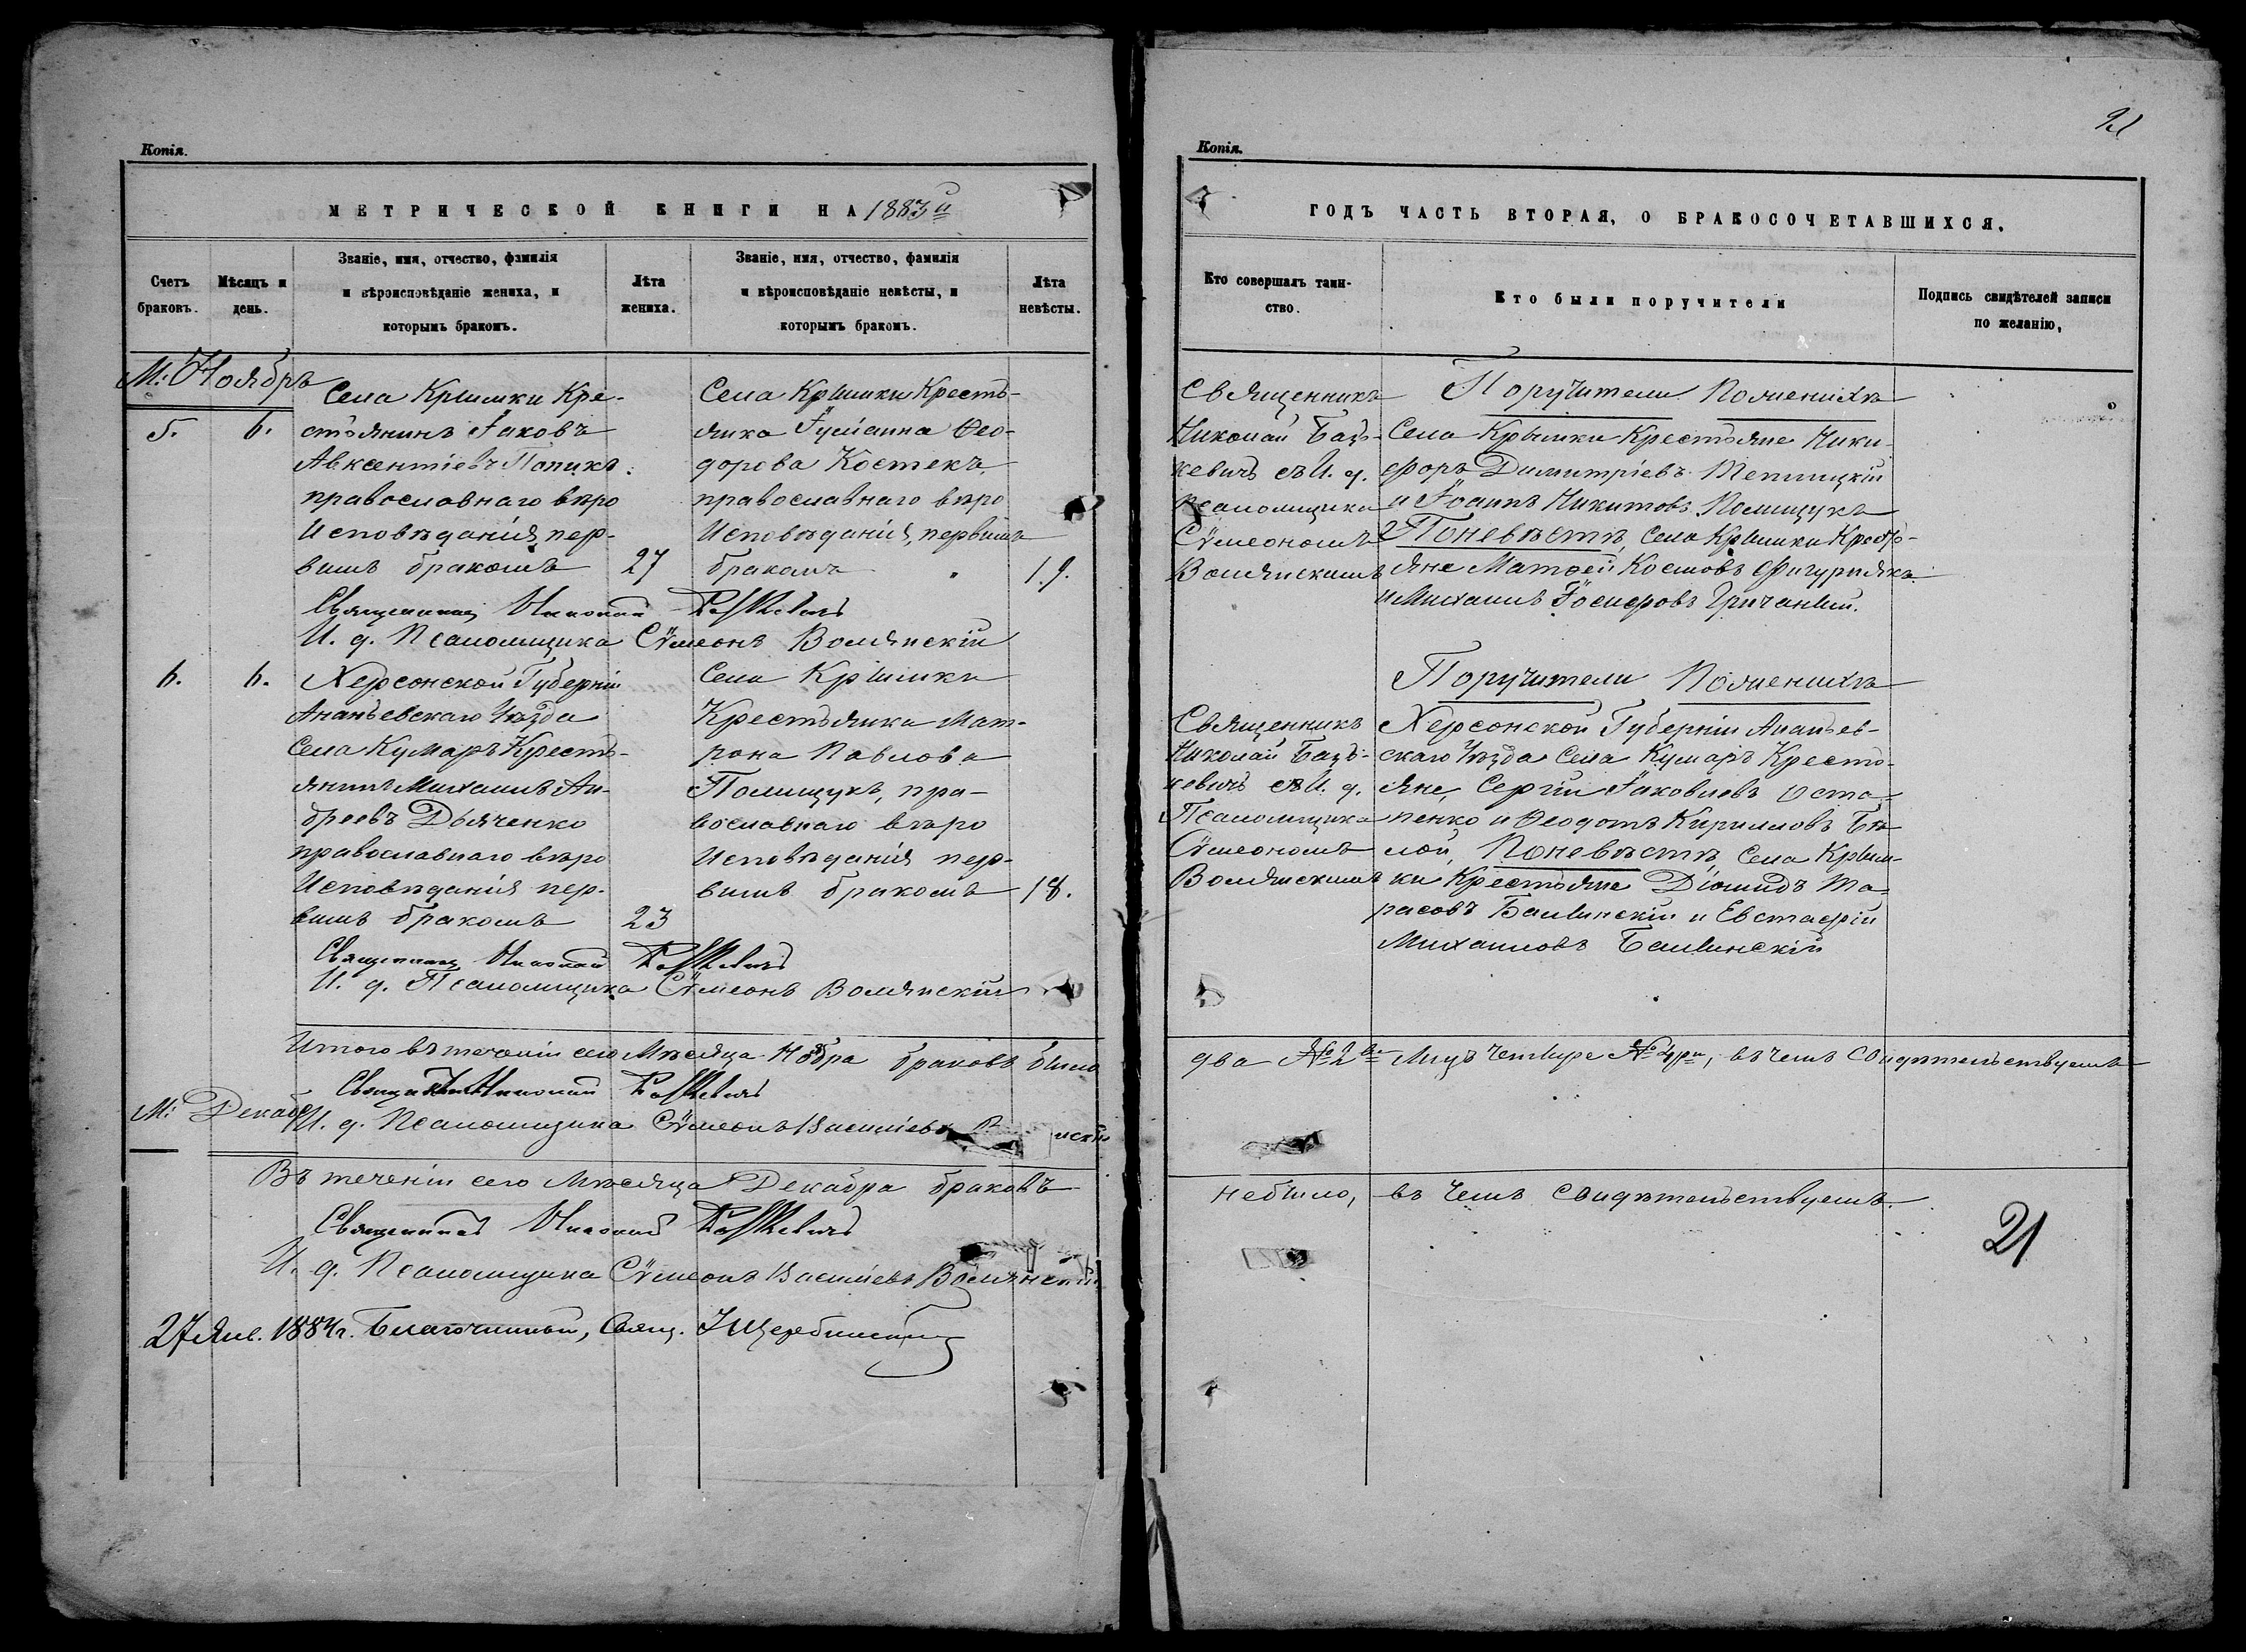 Копія.
МЕТРИЧЕСКОЙ КНИГИ НА 1883й
Счетъ браковъ.
Мѣсяцъ и день.
Званіе, имя, отчество, фамилія
и вѣроисповѣданіе жениха, и
которымъ бракомъ.
Лѣта
жениха.
Званіе, имя, отчество, фамилія
и вѣроисповѣданіе невѣсты, и
которымъ бракомъ.
Лѣта
невѣсты.
М: Ноябрь
5.
6.
Села Крымки Кре-
стьянинъ Іаковъ
Авксентіевъ Попикъ.
православнаго вѣро
Исповѣданія, пер-
вымъ бракомъ
27
Села Крымки Кресть-
янка Іуліанна Ѳео-
дорова Костекъ
православнаго вѣро
Исповѣданія, первымъ
бракомъ
19.
Священникъ Николай
И. д. Псаломщика Сѵмеонъ Волянскій
6.
6.
Херсонской Губерніи
Ананьевскаго Уѣзда
Села Кумаръ Кресть-
янинъ Михаилъ Ан-
дреевъ Дьяченко
православнаго вѣро
Исповѣданія пер-
вымъ бракомъ
23
Села Крымки
Крестьянка Мат-
рона Павлова
Полищукъ, пра-
вославнаго вѣро
Исповѣданія пер-
вымъ бракомъ
18.
Священникъ Николай
И. д. Псаломщика Сѵмеонъ Волянскій
Итого въ теченіи сего Мѣсяца Ноября браковъ было
Священникъ Николай
М: Декабрь
И. д. Псаломщика Сѵмеонъ Василіевъ
Въ теченіи сего Мѣсяца Декабря браковъ
Священникъ Николай
И. д. Псаломщика Сѵмеонъ Василіевъ Волянскій
27 Янв. 1884 г. Благочинный, Свящ. Щербинскій
Копія.
21
ГОДЪ ЧАСТЬ ВТОРАЯ, О БРАКОСОЧЕТАВШИХСЯ.
Кто совершалъ таин-
ство.
Кто были поручители
Подпись свидѣтелей записи
по желанію,
Священникъ
Николай Баць-
кевичъ съ И. д.
Псаломщика
Сѵмеономъ
Волянскимъ
Поручители По женихѣ
Села Крымки Крестьяне Ники-
форъ Димитріевъ Теплицкій
и Іоаннъ Никитовъ Полищукъ
По невѣстѣ, Села Крымки Кресть-
яне Матѳей Космовъ Фигурнякъ
и Михаилъ Іосифовъ Гричаный.
Священникъ
Николай Баць-
кевичъ съ И. д.
Псаломщика
Сѵмеономъ
Волянскимъ
Поручители По женихѣ
Херсонской Губерніи Ананьев-
скаго Уѣзда Села Кумаръ Кресть-
яне, Сергій Іаковлевъ Оста-
пенко и Ѳеодотъ Кирилловъ Бѣ-
лой, По невѣстѣ, Села Крым-
ки Крестьяне Діомидъ Та-
расовъ Балынскій и Евстафій
Михаиловъ Балынскій
два № 2 Лицъ четыре № 4ри, въ чемъ Свидѣтельствуемъ
небыло, въ чемъ Свидѣтельствуемъ.
21